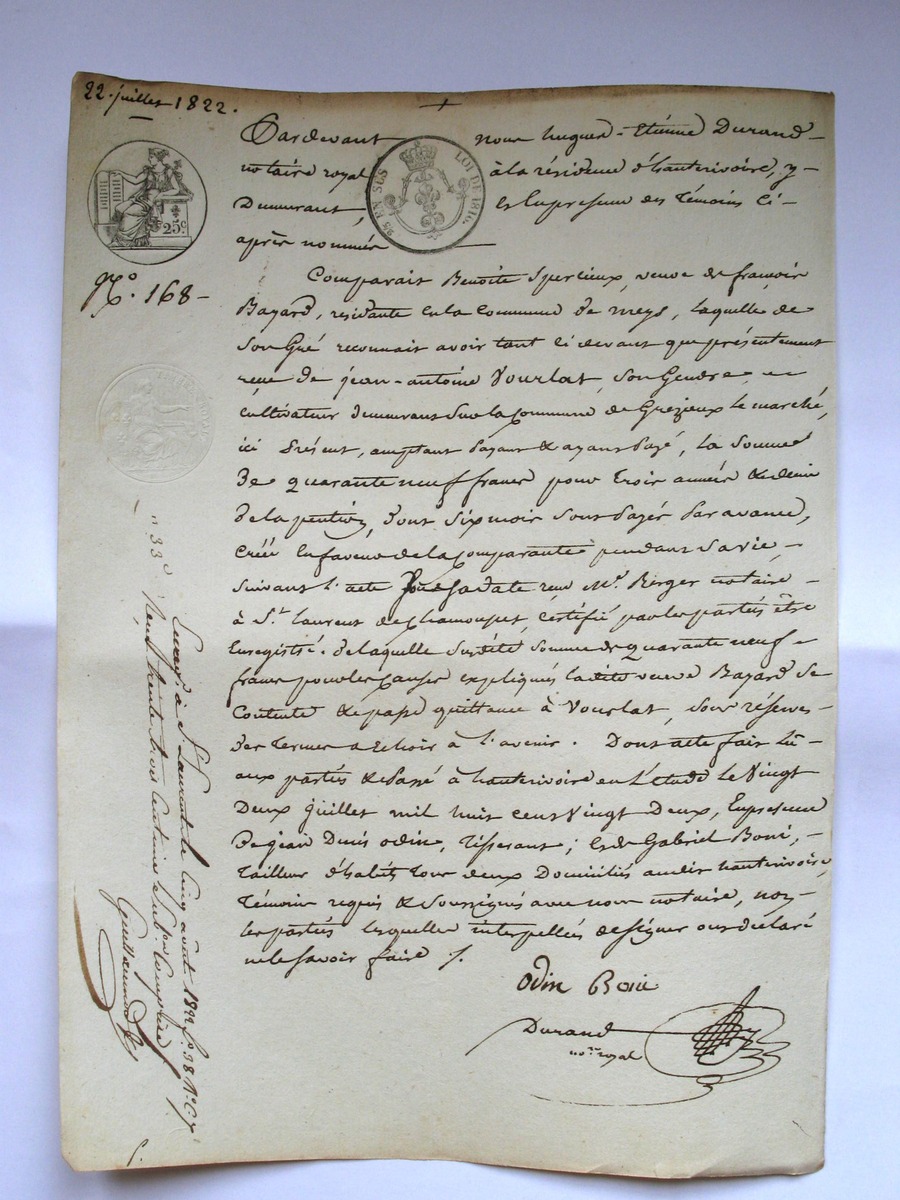 22. juillet 1822.
Pardevant nous hugues-Etienne Durand
notaire royal à la résidence d'hauterivoire, y
Demeurant, et En presence des Témoins Ci-
après nommés
25 EN SUS LOI DE 1816.
25c.
No. 168
Comparait Benoîte Spercieux, veuve de françois
Bayard, residante en la Commune de meys, laquelle de
Son Gré reconnait avoir tant ci devant que présentement
reçu de jean-antoine Vourlat, son Gendre,
cultivateur demeurant sur la Commune de Grezieux le marché,
ici Présent, acceptant payant & ayant payé, la somme
De quarante neuf francs pour trois années & demie
de la pention, dont six mois sont payés Par avance,
Créée En faveur de la Comparante pendant sa vie,
Suivant l'acte sa date reçu Me. Berger notaire
à St. Laurent de Chamousset, Certifié par les parties être
Enregistré. de laquelle susdite somme de quarante neuf
francs pour les Causes expliquées ladite veuve Bayard se
Contente & passe quittance à Vourlat, sous réserves
des termes a Echoir à l'avenir. Dont acte fait lu
aux parties & Passé à hauterivoire en l'Etude le Vingt
Deux juillet mil huit cent Vingt Deux, En presence
De jean Denis odin, Tisserant; Et de Gabriel Boni,
Tailleur d'habits Tous deux Domiciliés audit hauterivoire,
Témoins requis & soussignés avec nous notaire, non
les parties lesquelles interpellées de signer ont déclaré
ne le savoir faire /.
odin Boni
Durand
nore royal
n. 33c
Enregé à St Laurent le cinq août 1822 fo 38 No C7
Reçu trente trois centimes subvon comprise